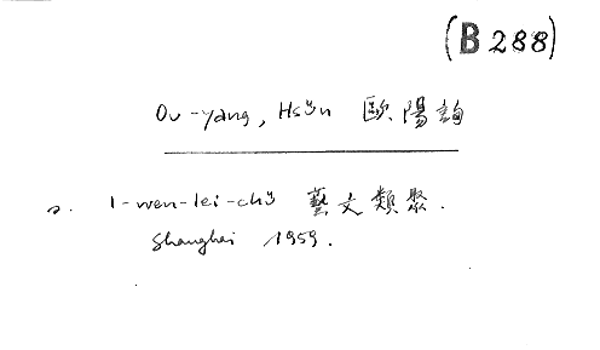 (B 288)
Ou-yang, Hsün 歐陽詢
a. I-wen-lei-chü 藝文類聚.
Shanghai 1959.